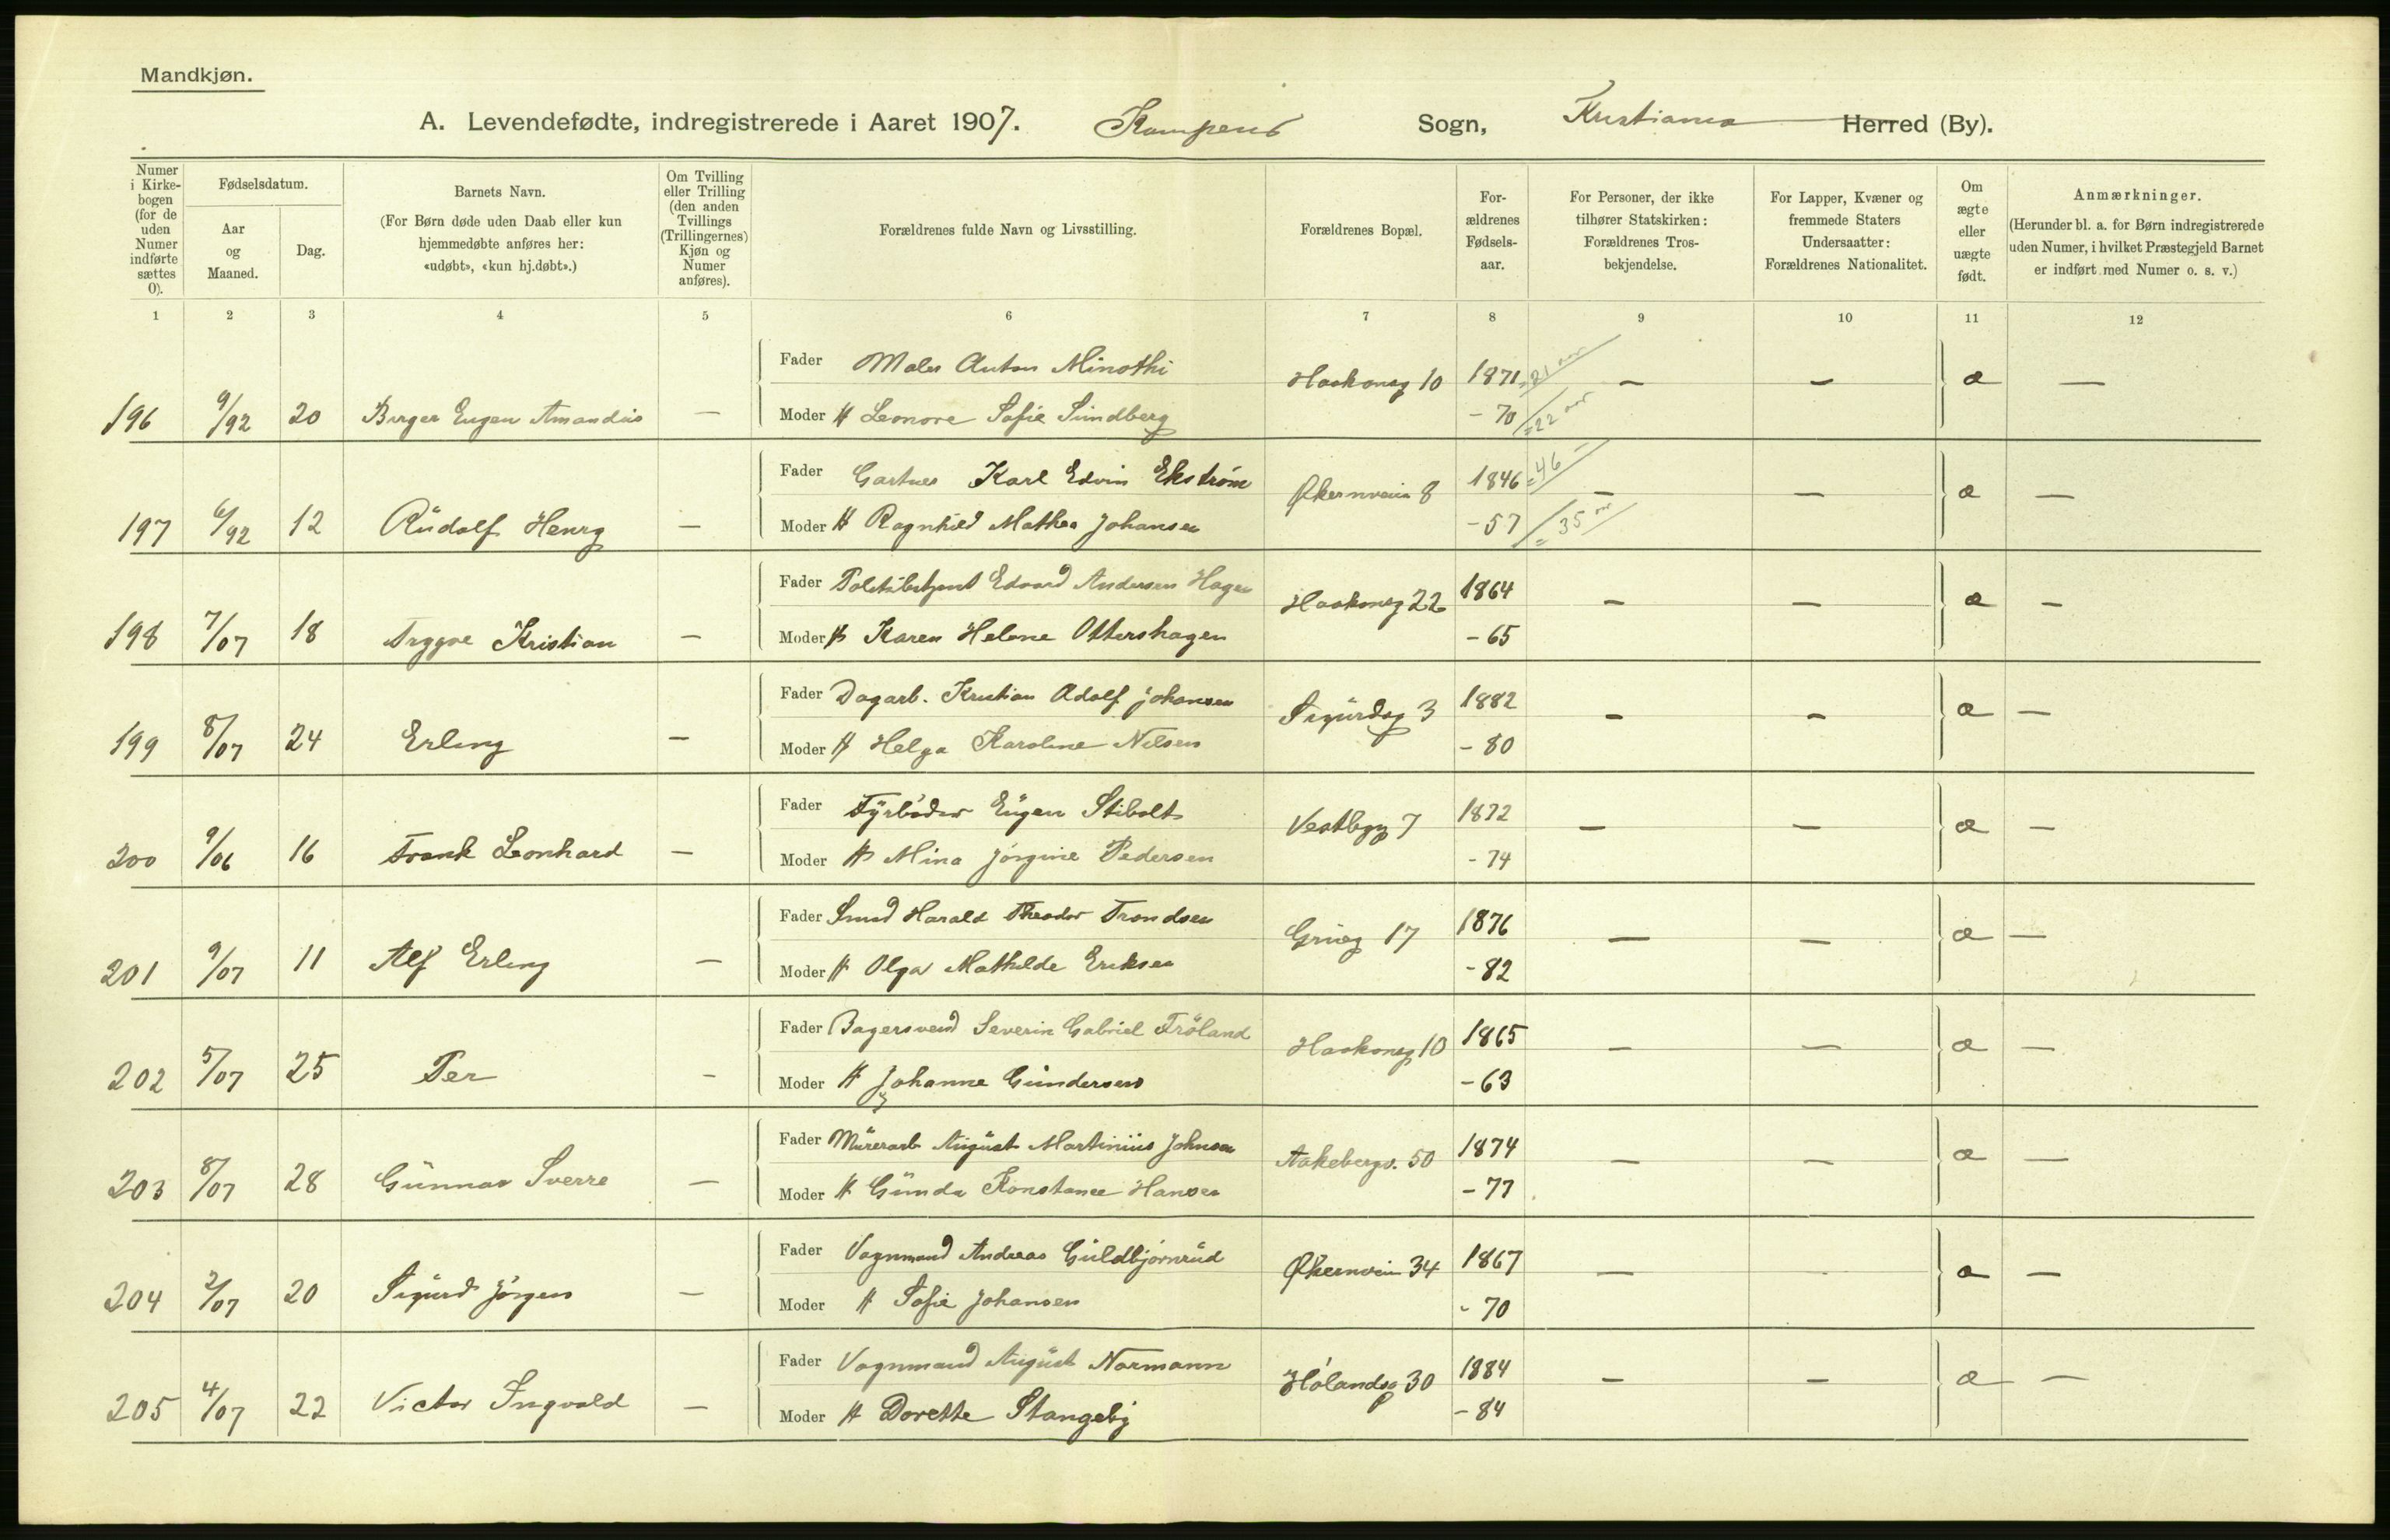 Mandkjøn.
A. Levendefødte, indregistrerede i Aaret 1907. Kampens Sogn, Kristiania Herred (By).
Numer i Kirkebogen (for de uden Numer indførte sættes 0).
Fødselsdatum.
Aar og Maaned.
Dag.
Barnets Navn.
(For Børn døde uden Daab eller kun hjemmedøbte anføres her: «udøbt», «kun hj.døbt».)
Om Tvilling eller Trilling (den anden Tvillings (Trillingernes) Kjøn og Numer anføres).
Forældrenes fulde Navn og Livsstilling.
Forældrenes Bopæl.
Forældrenes Fødselsaar.
For Personer, der ikke tilhører Statskirken: Forældrenes Trosbekjendelse.
For Lapper, Kvæner og fremmede Staters Undersaatter: Forældrenes Nationalitet.
Om ægte eller uægte født.
Anmærkninger.
(Herunder bl. a. for Børn indregistrerede uden Numer, i hvilket Præstegjeld Barnet er indført med Numer o. s. v.)
1 2 3 4 5 6 7 8 9 10 11 12
Fader Maler Anton Minothi Haakonsg 10 1871 = 21 aar — — æ —
196 9/92 20 Birger Eugen Amandus — Moder H Leonore Sofie Sundberg - 70 = 22 aar
Fader Gartner Karl Edvin Ekström Økernveien 8 1846 = 46 — — æ —
197 6/92 12 Rudolf Henry — Moder H Ragnhild Mathea Johansen - 57 = 35
Fader Politibetjent Edvard Andersen Hagen Haakonsg 22 1864 — — æ —
198 7/07 18 Trygve Kristian — Moder H Karen Helene Ottershagen - 65
Fader Dagarb. Kristian Adolf Johansen Sigurdsg 3 1882 — — æ —
199 8/07 24 Erling — Moder H Helga Karoline Nilsen - 80
Fader Fyrbøder Eugen Stibolt Vestbyg 7 1872 — — æ —
200 9/06 16 Frank Leonhard — Moder H Mina Jørgine Pedersen - 74
Fader Smed Harald Theodor Trondsen Grieg 17 1876 — — æ —
201 9/07 11 Alf Erling — Moder H Olga Mathilde Eriksen - 82
Fader Bagersvend Severin Gabriel Fröland Haakonsg 10 1865 — — æ —
202 5/07 25 Per — Moder H Johanne Gundersen - 63
Fader Murerarb August Martinius Johnsen Aakebergv. 50 1874 — — æ —
203 8/07 28 Gunnar Sverre — Moder H Gunda Konstance Hansen - 77
Fader Vognmand Andreas Guldbjørnrud Økernveien 34 1867 — æ —
204 2/07 20 Sigurd Jørgen — Moder H Sofie Johansen - 70
Fader Vognmand August Normann Hølandsg 30 1884 — — æ —
205 4/07 22 Victor Ingvald — Moder H Dorette Stangeby - 84